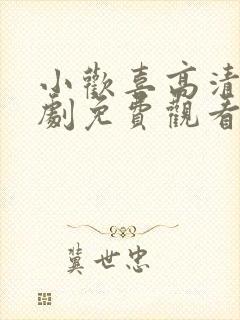 小歡喜高清
劇免費觀看
冀世忠